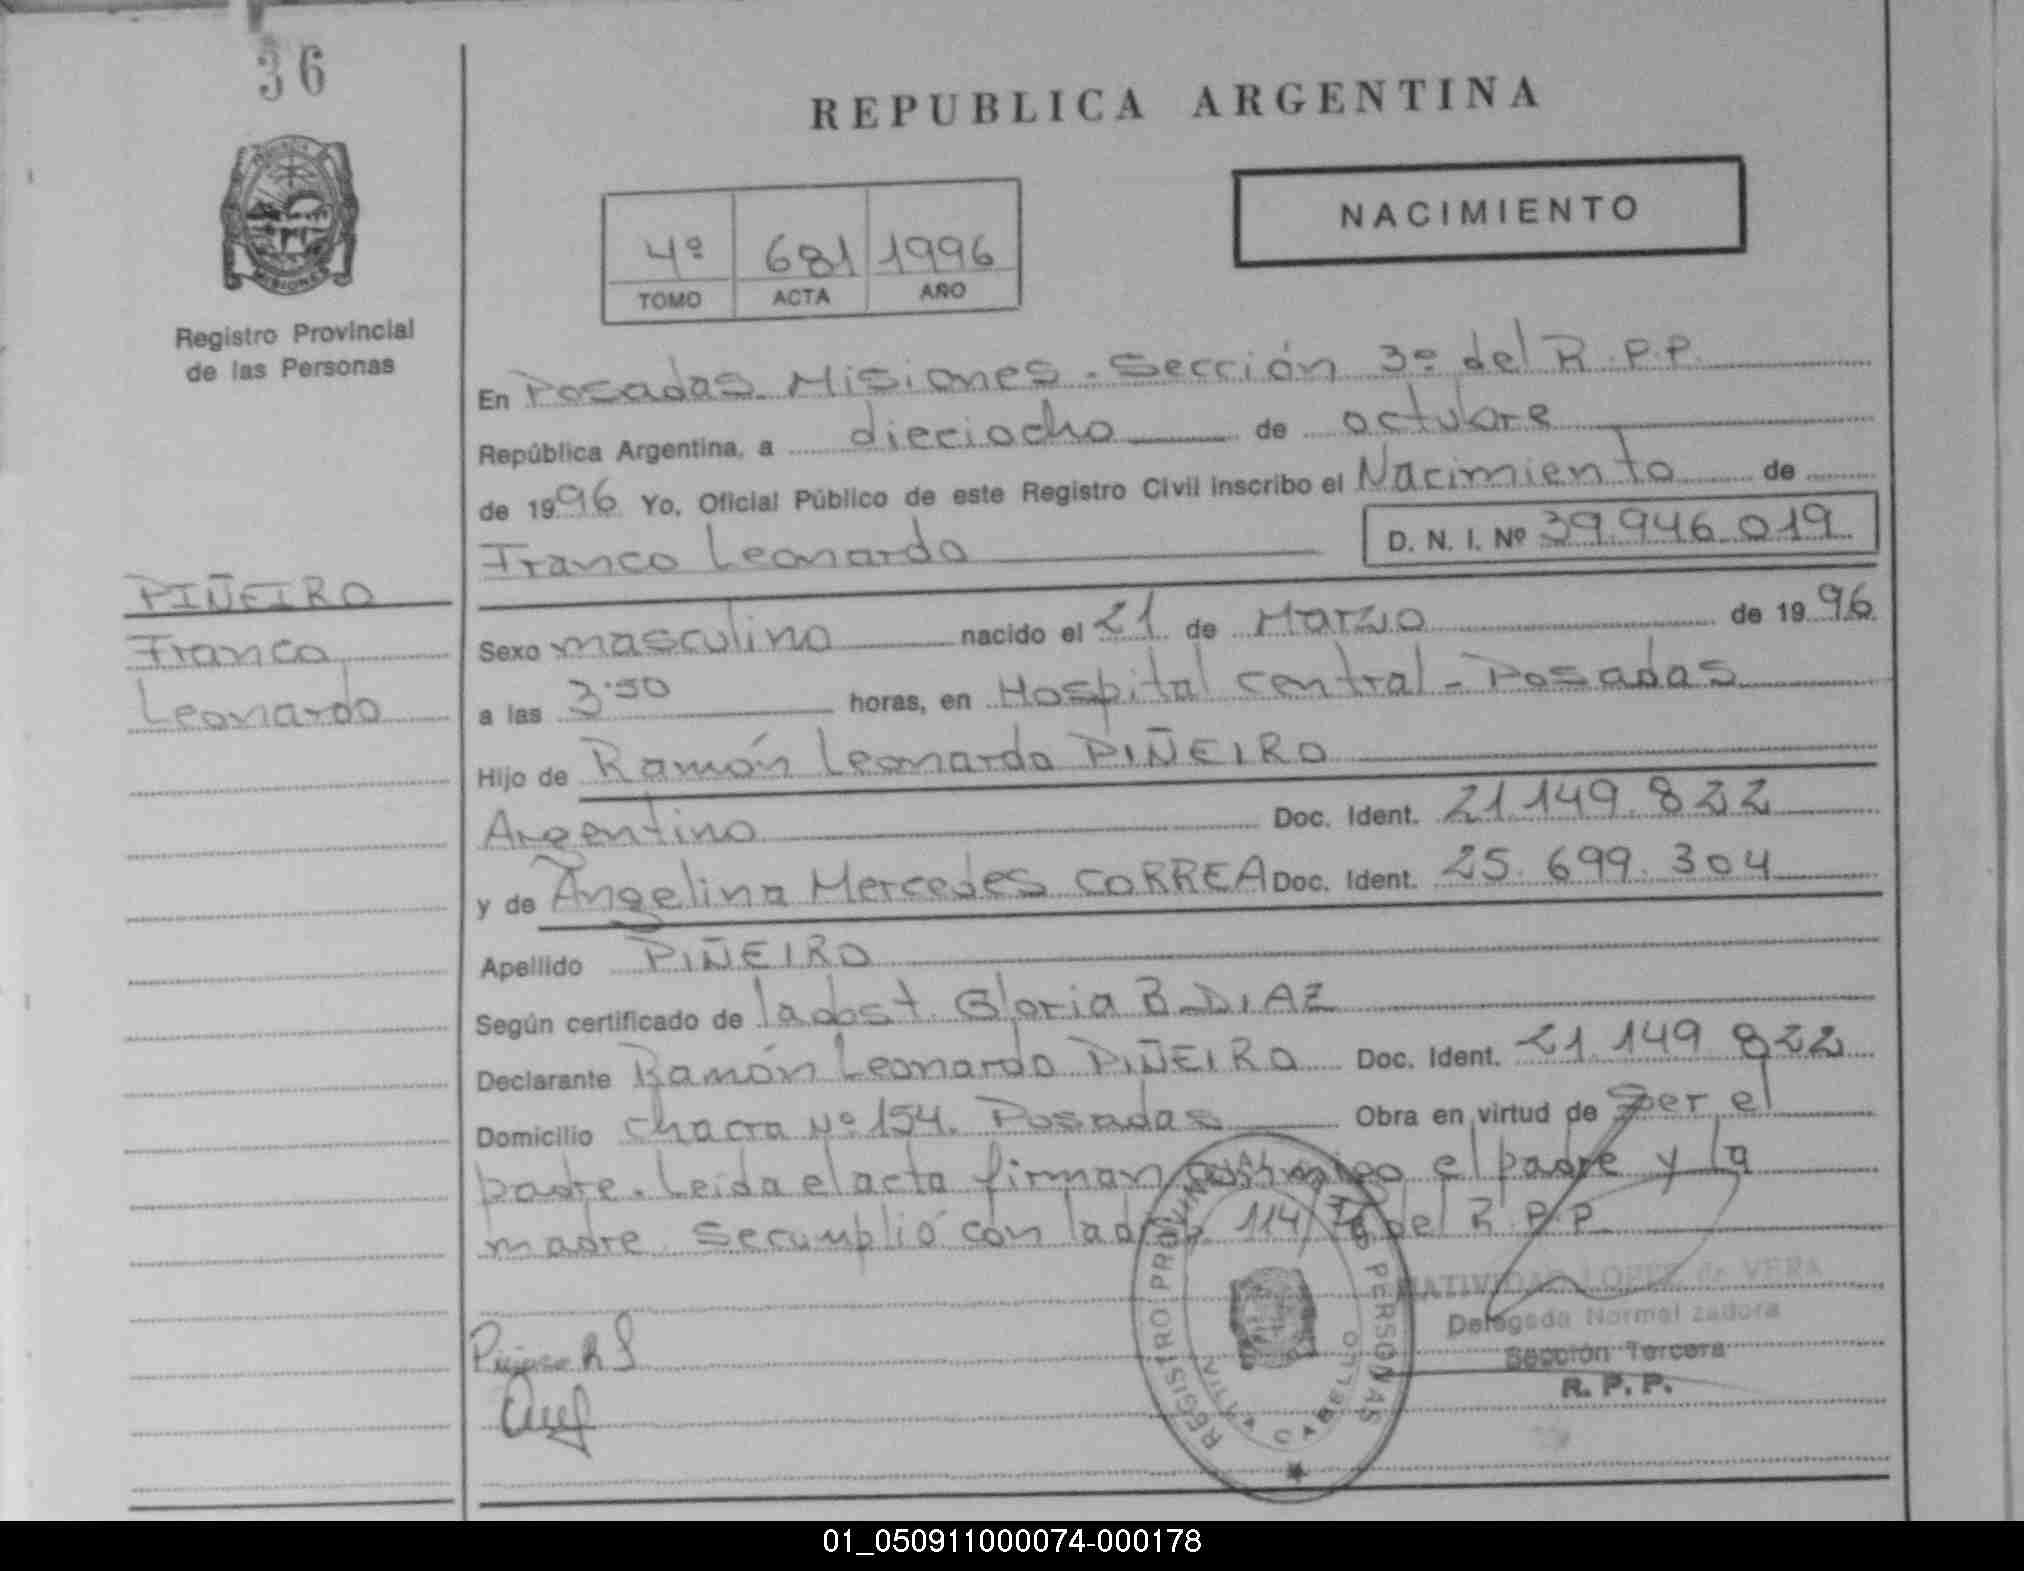 36
REPUBLICA ARGENTINA
NACIMIENTO
4º 681 1996
TOMO ACTA AÑO
Registro Provincial
de las Personas
En Posadas Misiones - Sección 3º del R.P.P.
República Argentina, a dieciocho de octubre
de 1996 Yo, Oficial Público de este Registro Civil inscribo el Nacimiento de
Franco Leonardo D. N. I. Nº 39.946.019
PIÑEIRO
Franco
Leonardo
Sexo masculino nacido el 21 de Marzo de 1996
a las 3.50 horas, en Hospital Central - Posadas
Hijo de Ramón Leonardo PIÑEIRO
Argentino Doc. Ident. 21.149.822
y de Angelina Mercedes CORREA Doc. Ident. 25.699.304
Apellido PIÑEIRO
Según certificado de la obst. Gloria B. DIAZ
Declarante Ramón Leonardo PIÑEIRO Doc. Ident. 21.149.822
Domicilio Chacra Nº 154. Posadas Obra en virtud de ser el
padre. Leída el acta firman conmigo el padre y la
madre. Se cumplió con la 114/76 del R.P.P.
REGISTRO PROVINCIAL PERSONAS
NATIVIDAD LOPEZ de VERA
Delegada Normalizadora
Sección Tercera
R. P. P.
01_050911000074-000178